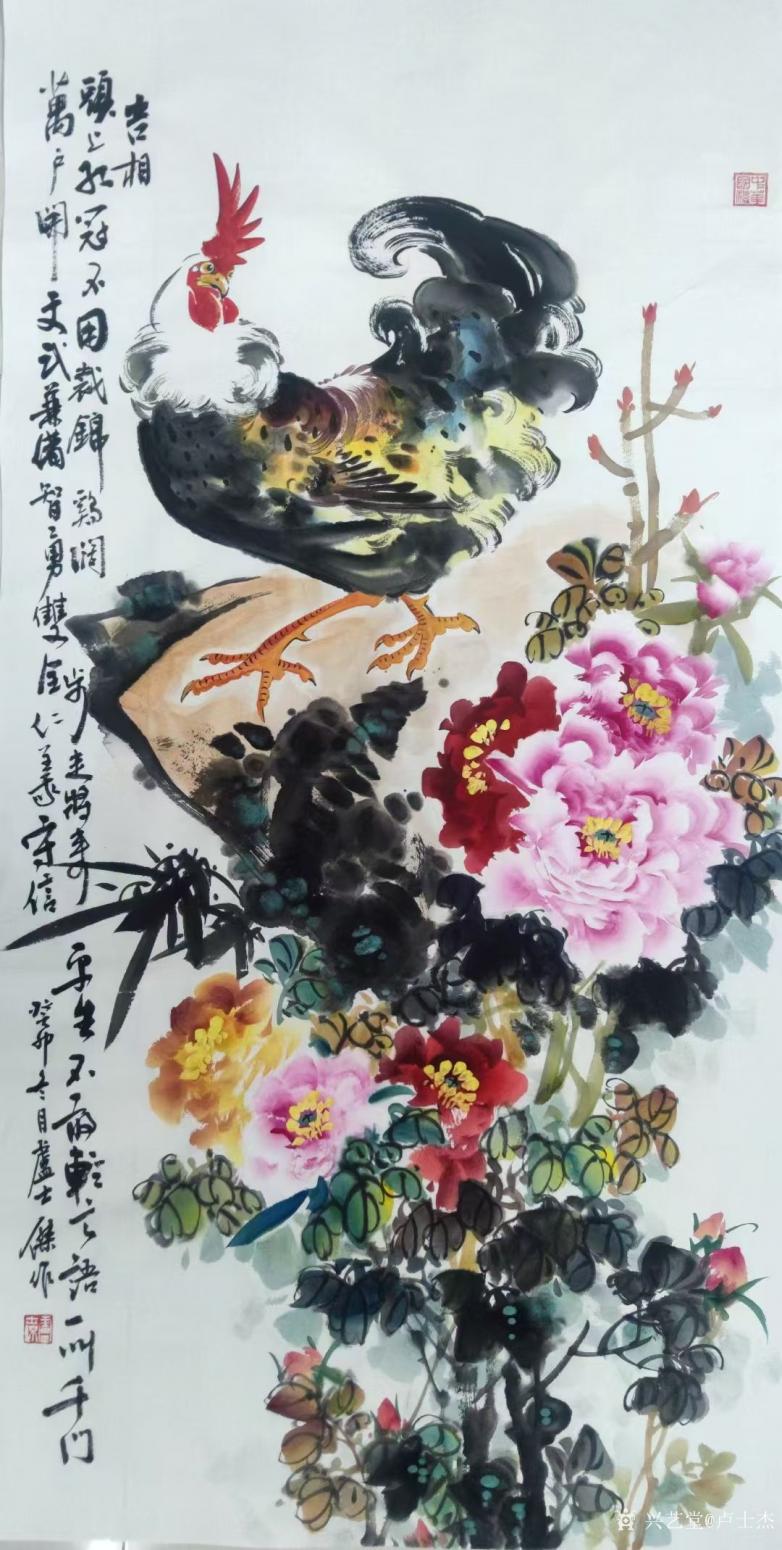 吉相
頭上红冠不用裁錦鷄濶步走將来平生不敢輕言語一叫千门
萬户開文武兼備智勇雙全仁義守信
癸卯冬月盧士傑作
兴艺堂@卢士杰